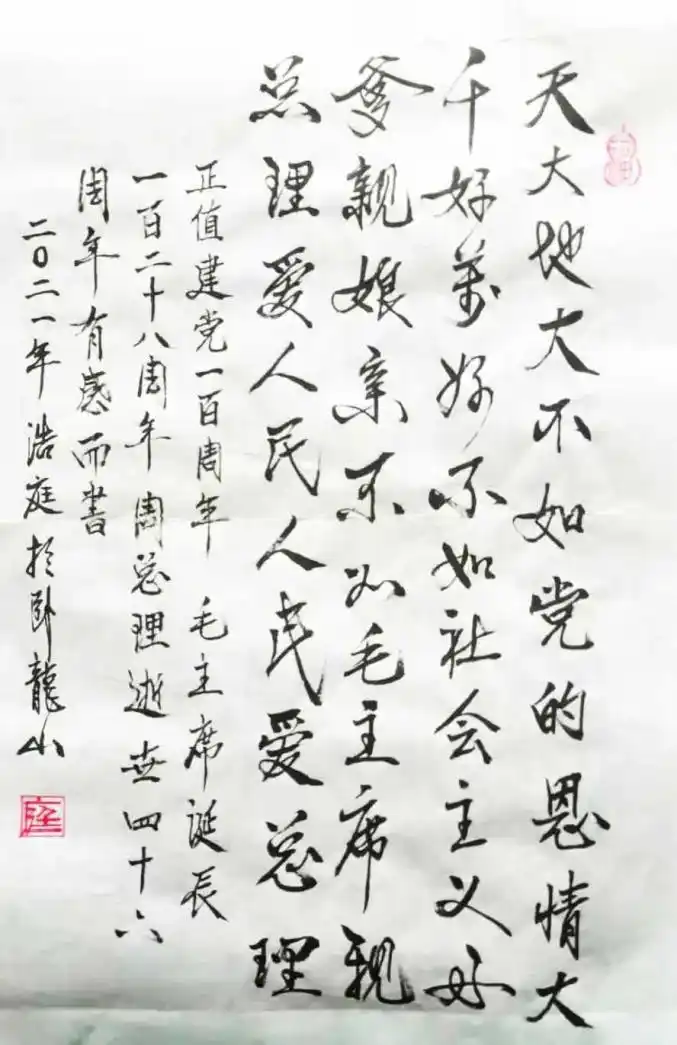 天大地大不如党的恩情大
千好万好不如社会主义好
爹親娘亲不如毛主席親
总理爱人民人民爱总理
正值建党一百周年 毛主席诞辰
一百二十八周年周总理逝世四十六
周年有感而書
二〇二一年浩庭於卧龍山
庭